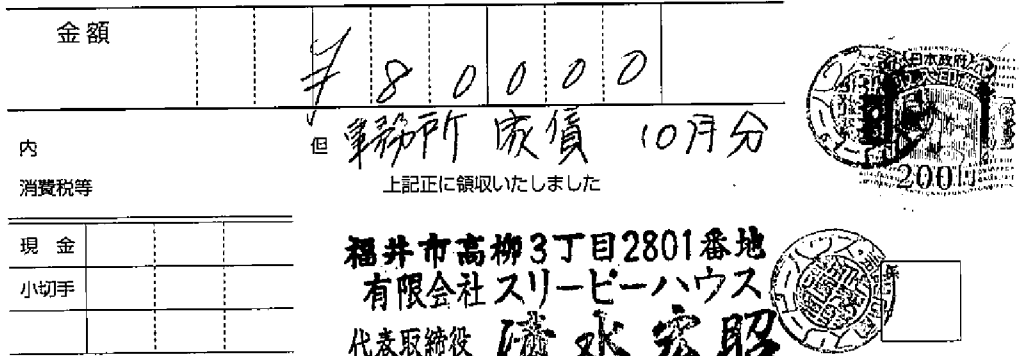 金額 ¥80000
内 但 事務所 家賃 10月分
消費税等 上記正に領収いたしました
日本政府
200円
現金
小切手
福井市高柳3丁目2801番地
有限会社スリーピーハウス
係
代表取締役 清水宏昭